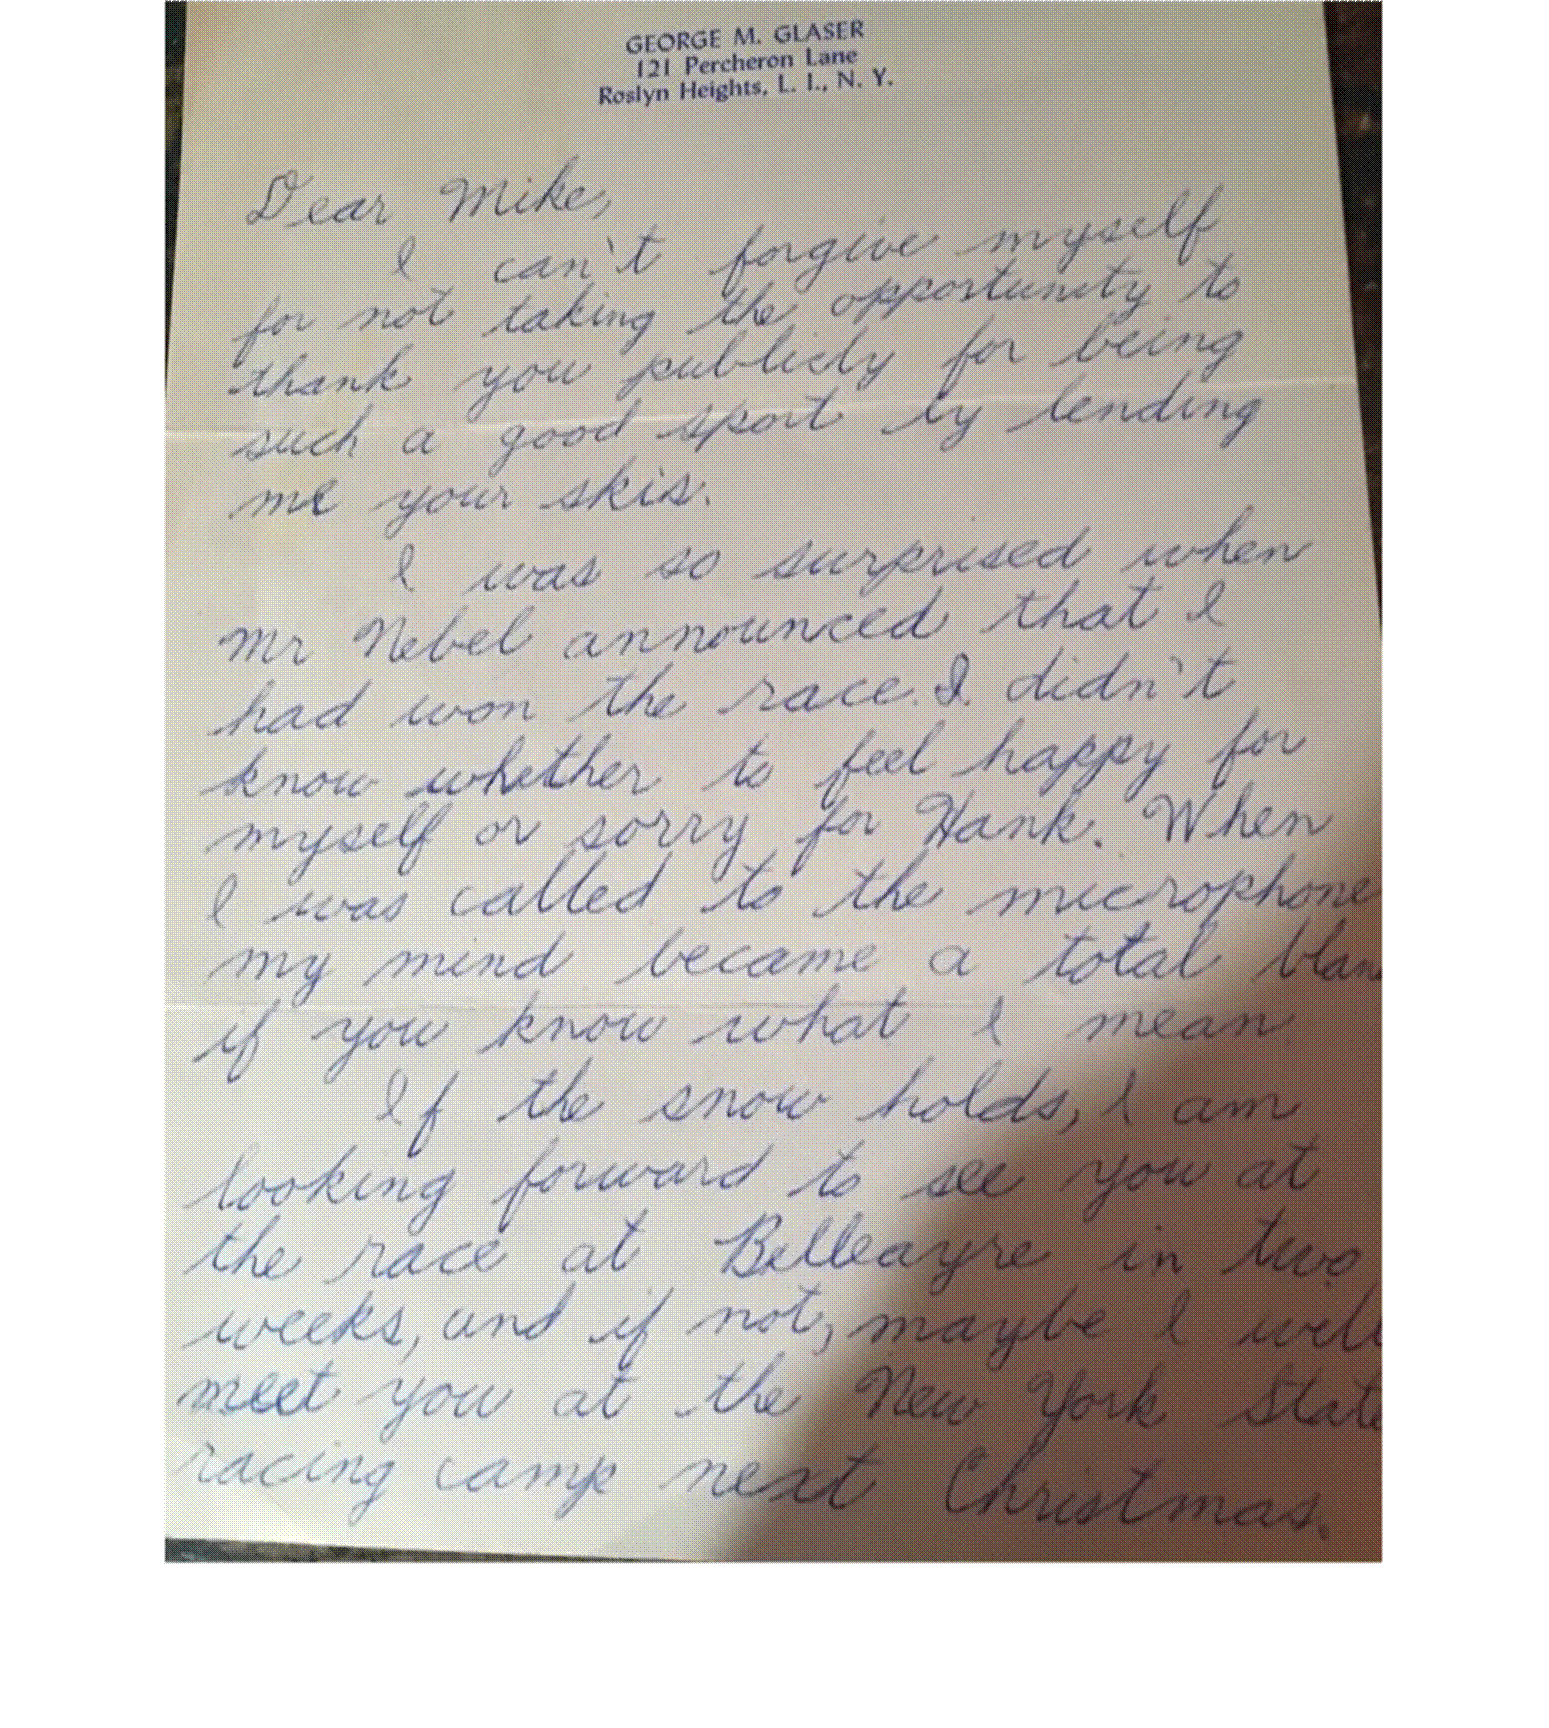 GEORGE M. GLASER
121 Percheron Lane
Roslyn Heights, L. I., N. Y.
Dear Mike,
I can't forgive myself
for not taking the opportunity to
thank you publicly for being
such a good sport by lending
me your skis.
I was so surprised when
Mr Nebel announced that I
had won the race. I didn't
know whether to feel happy for
myself or sorry for Hank. When
I was called to the microphone
my mind became a total blan
if you know what I mean
If the snow holds, I am
looking forward to see you at
the race at Belleayre in two
weeks, and if not, maybe I will
meet you at the New York State
racing camp next Christmas.